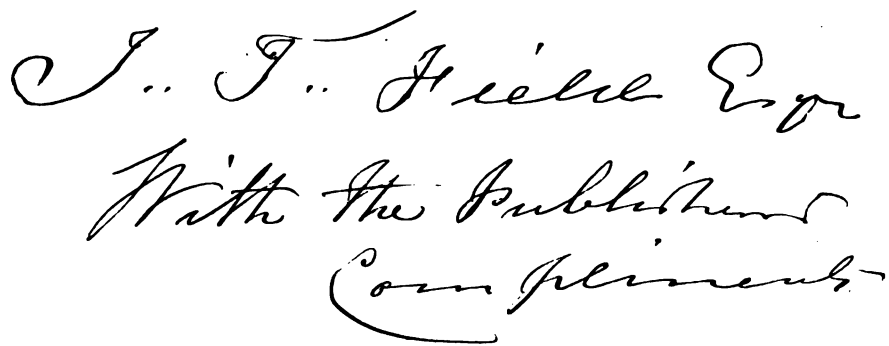 J.. T.. Field Esqr
With the Publishers
Compliments